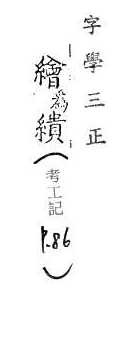 字學三正
繪為繢(考工記P.86)